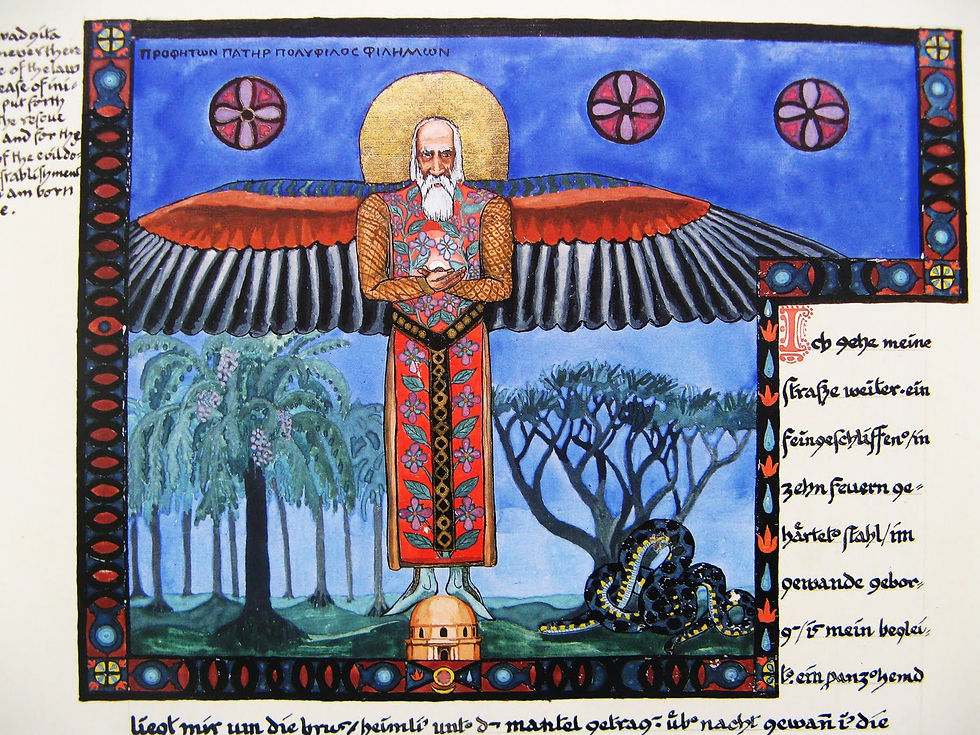 ΠΡΟΦΗΤΩΝ ΠΑΤΗΡ ΠΟΛΥΦΙΛΟΣ ΦΙΛΗΜΩΝ
vad gita
never there
e of the law
ease of ini-
put forth
he rescue
and for the
of the evildo-
stablishment
am born
e.
Ich gehe meine
straße weiter. ein
feingeschliffen⁰/in
zehn feuern ge-
härtet⁰ stahl/im
gewande gebor-
g-/is mein beglei-
t⁰. ein panz⁰hemd
liegt mir um die brus/heimli' unt⁰ d- mantel getrag-. üb⁰ nacht gewañ i' die